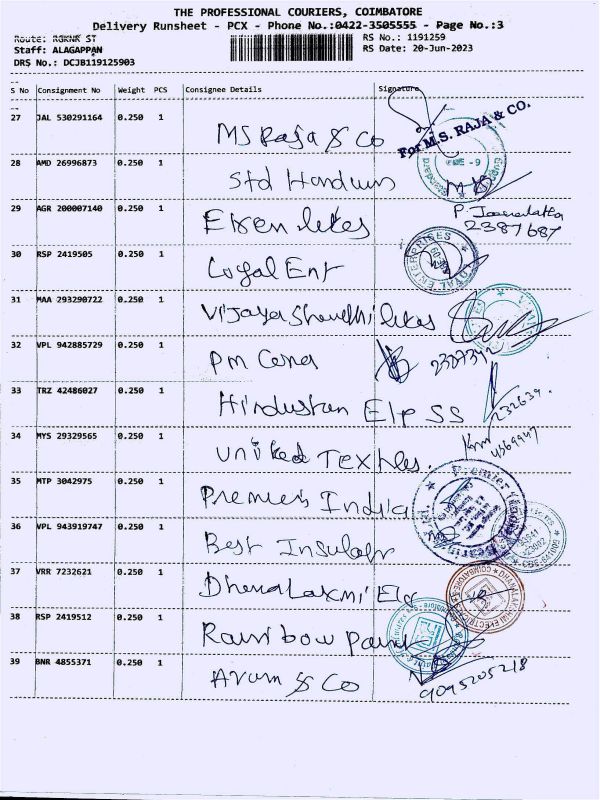 THE PROFESSIONAL COURIERS, COIMBATORE
Delivery Runsheet - PCX - Phone No.:0422-3505555 - Page No.:3
Route: RGKNR ST
RS No.: 1191259
Staff: ALAGAPPAN
RS Date: 20-Jun-2023
DRS No.: DCJB119125903
S No Consignment No Weight PCS Consignee Details Signature
27 JAL 530291164 0.250 1 MS Raja & Co For M.S. RAJA & CO.
28 AMD 26996873 0.250 1 Std
29 AGR 200007140 0.250 1 Eksen lekes
2387687
30 RSP 2419505 0.250 1 Loyal Ent
31 MAA 293290722 0.250 1 Vijaya
32 VPL 942885729 0.250 1 Pm
33 TRZ 42486027 0.250 1 Hindustan Ele SS
232639
34 MYS 29329565 0.250 1 United Textiles.
35 MTP 3042975 0.250 1 Premier India
36 VPL 943919747 0.250 1 Best Insulatr
37 VRR 7232621 0.250 1 Dhanalaxmi Ele
DHANALAKSHMI ELECTRICALS COIMBATORE
38 RSP 2419512 0.250 1 Rainbow Paint
39 BNR 4855371 0.250 1 Arun & Co
9095205218